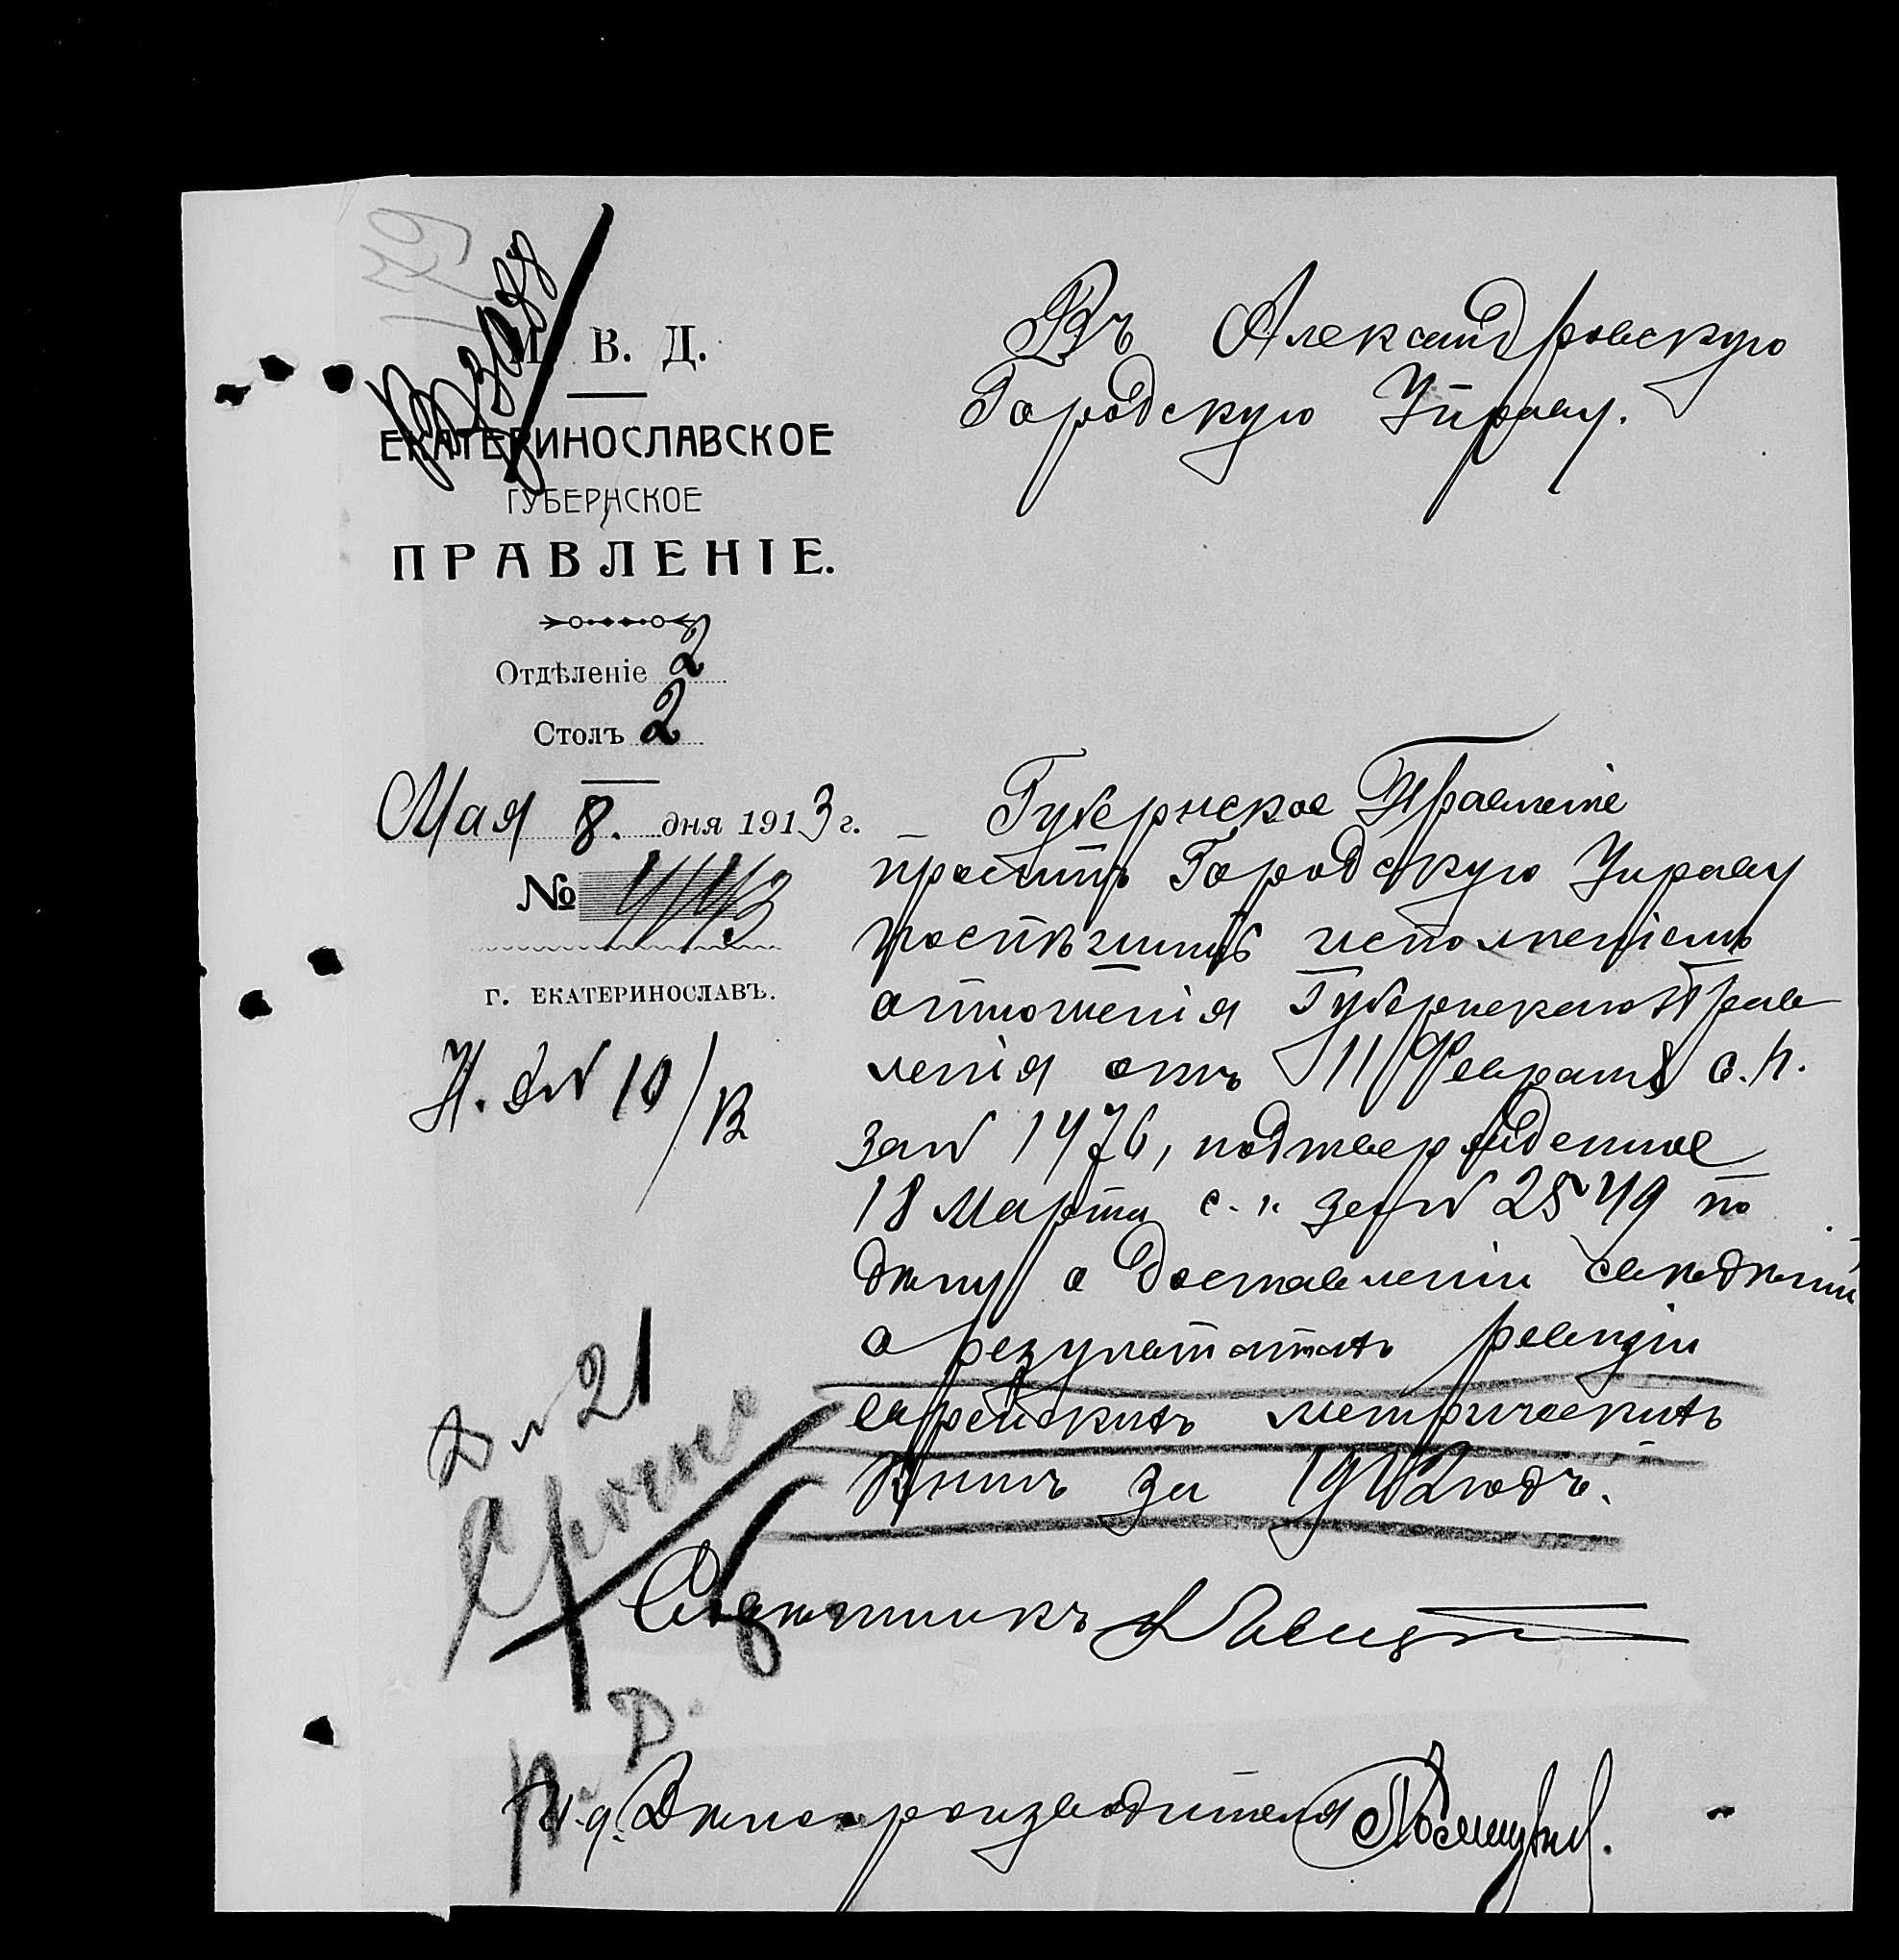 179
М. В. Д.
ЕКАТЕРИНОСЛАВСКОЕ
ГУБЕРНСКОЕ
ПРАВЛЕНІЕ.
Отдѣленіе 2
Столъ 2
Мая 8. дня 1913 г.
№ 4443
г. ЕКАТЕРИНОСЛАВЪ.
Н. д № 10/В
Въ Александровскую
Городскую Управу.
Губернское Правленіе
проситъ Городскую Управу
поспѣшить исполненіемъ
отношенія Губернскаго Прав
ленія отъ 11 Февраля с. г.
за № 1476, подтвержденное
18 Марта с. г. за № 2549 по
дѣлу о доставленіи свѣдѣній
о результатахъ ревизіи
еврейскихъ метрическихъ
книгъ за 1912 годъ.
Д № 21
Срочно
Совѣтникъ
Н. Д.
И. д. Дѣлопроизводителя